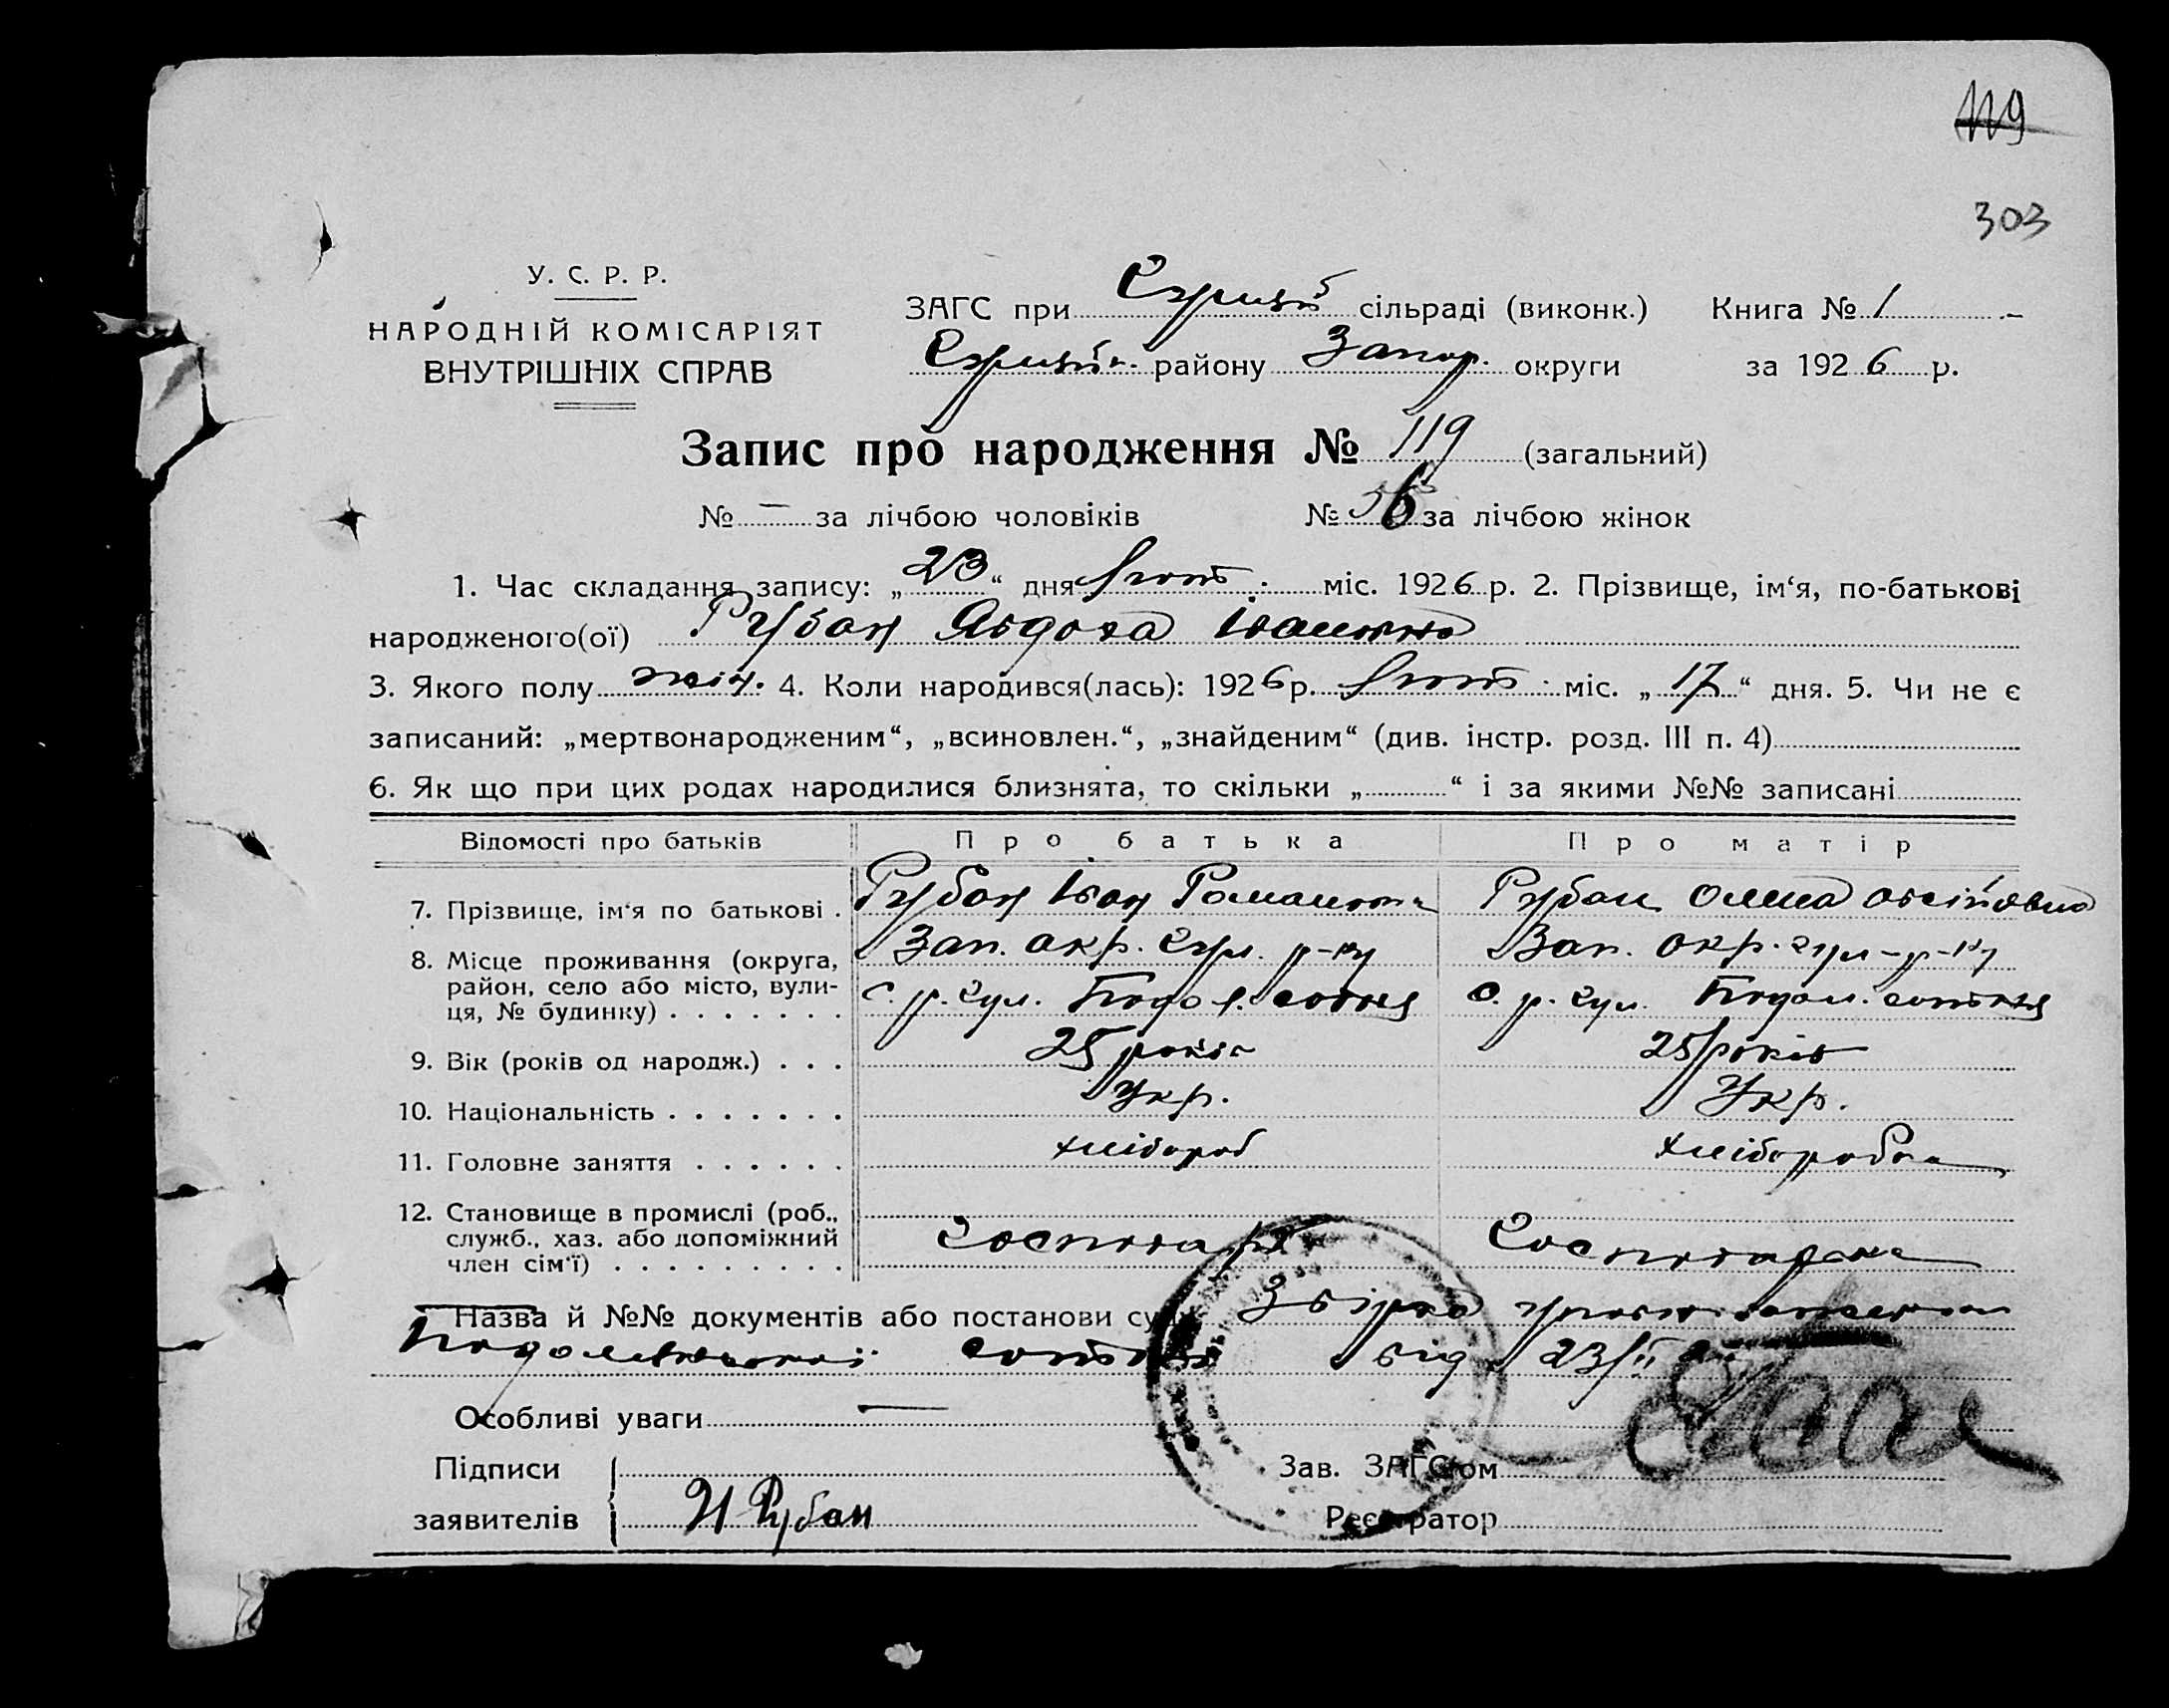 119
303
У. С. Р. Р.
НАРОДНІЙ КОМІСАРІЯТ
ВНУТРІШНІХ СПРАВ
ЗАГС при сільраді (виконк.) Книга № 1
району Запор. округи за 1926 р.
Запис про народження № 119 (загальний)
№ — за лічбою чоловіків № 56 за лічбою жінок
1. Час складання запису: „23“ дня лютого міс. 1926 р. 2. Прізвище, ім‘я, по-батькові
народженого(ої) Рубан Явдоха Івановна
3. Якого полу жін. 4. Коли народився(лась): 1926 р. лютого міс. „17“ дня. 5. Чи не є
записаний: „мертвонародженим“, „всиновлен.“, „знайденим“ (див. інстр. розд. III п. 4)
6. Як що при цих родах народилися близнята, то скільки „ “ і за якими №№ записані
Відомості про батьків Про батька Про матір
7. Прізвище, ім‘я по батькові . Рубан Іван Романович Рубан Олена
8. Місце проживання (округа, Зап. окр. Гул. р-ну Зап. окр. Гул-р-ну
район, село або місто, вули- с. р. Гул. Подол. сотня с. р. Гул. Подол. сотня
ця, № будинку) . . . . . . .
9. Вік (років од народж.) . . . 25 років 25 років
10. Національність . . . . . . . Укр. Укр.
11. Головне заняття . . . . . . хлібороб хліборобка
12. Становище в промислі (роб.,
служб., хаз. або допоміжний Господар Господарка
член сім‘ї) . . . . . . . . .
Назва й №№ документів або постанови суду
сотні від 23/II
Особливі уваги —
Підписи Зав. ЗАГС‘ом
заявителів И Рубан Реєстратор